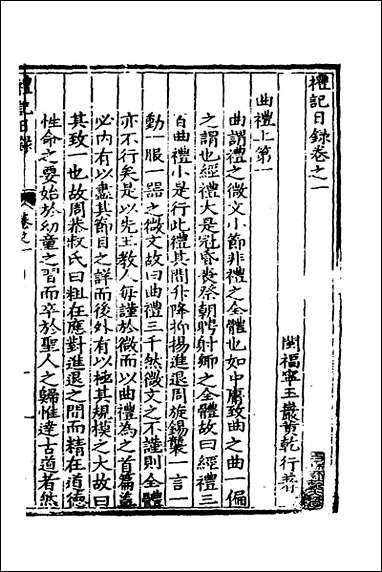 禮記日錄卷之一
閩福寧玉巖黄乾行著
曲禮上第一
曲謂禮之微文小節非禮之全體也如中庸致曲之曲一偏
之謂也經禮大是冠昏喪祭朝聘射鄉之全體故曰經禮三
百曲禮小是行此禮其間升降抑揚進退周旋錫襲一言一
動一服一器之微文故曰曲禮三千然微文之不謹則全體
亦不行矣是以先王教人每謹於微而以曲禮為之首篇蓋
必内有以盡其節目之詳而後外有以極其規模之大故曰
其致一也故周恭叔氏曰粗在應對進退之間而精在道德
性命之要始於幼童之習而卒於聖人之歸惟達古道者然
禮記日錄
卷之一